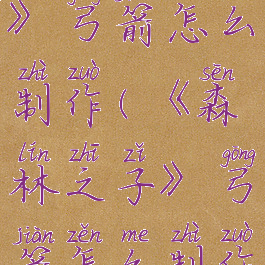 》弓箭怎么
zhì zuò sēn
制作(《森
lín zhī zǐ gōng
林之子》弓
jiàn zěn me zhì zuò
箭怎么制作